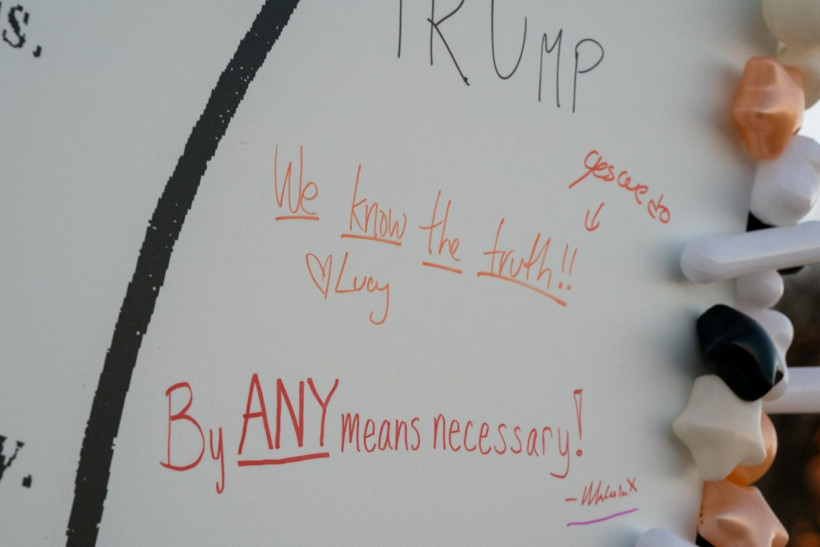 s.
TRUMP
yes we do
We know the truth!!
♡ Lucy
By ANY means necessary!
- Malcolm X
y.